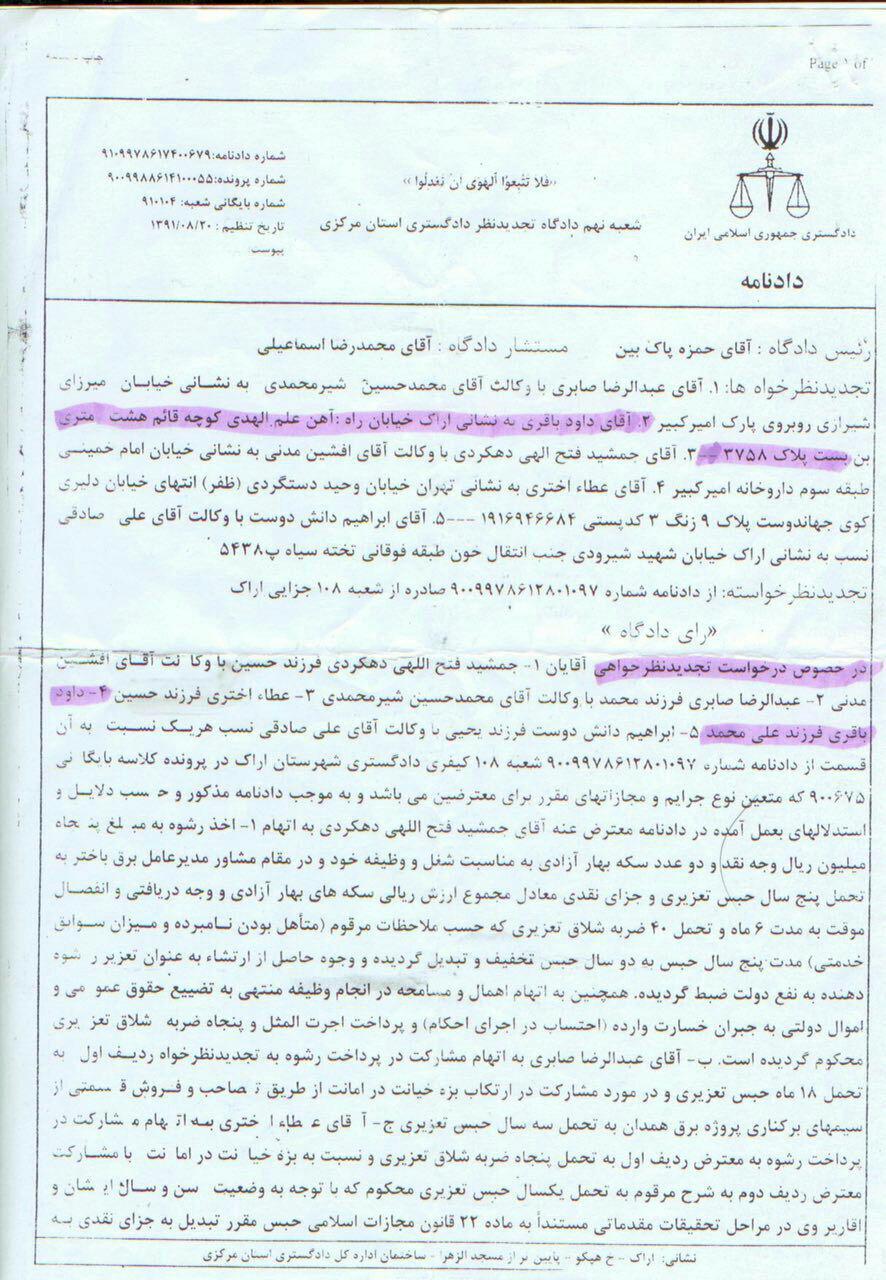 Page ۱ of
چاپ
شماره دادنامه:۹۱۰۹۹۷۸۶۱۷۴۰۰۶۷۹
شماره پرونده:۹۰۰۹۹۸۸۶۱۴۱۰۰۰۵۵
شماره بایگانی شعبه: ۹۱۰۱۰۴
تاریخ تنظیم : ۱۳۹۱/۰۸/۲۰
پیوست:
«فَلا تَتَّبِعوُا اَلهَوی اَن تَعدِلُوا»
شعبه نهم دادگاه تجدیدنظر دادگستری استان مرکزی
دادگستری جمهوری اسلامی ایران
دادنامه
رئیس دادگاه : آقای حمزه پاک بین مستشار دادگاه : آقای محمدرضا اسماعیلی
تجدیدنظرخواه ها: ۱. آقای عبدالرضا صابری با وکالت آقای محمدحسین شیرمحمدی به نشانی خیابان میرزای
شیرازی روبروی پارک امیرکبیر ۲. آقای داود باقری به نشانی اراک خیابان راه آهن علم الهدی کوچه قائم هشت متری
بن بست پلاک ۳۷۵۸ --۳. آقای جمشید فتح الهی دهکردی با وکالت آقای افشین مدنی به نشانی خیابان امام خمینی
طبقه سوم داروخانه امیرکبیر ۴. آقای عطاء اختری به نشانی تهران خیابان وحید دستگردی (ظفر) انتهای خیابان دلیری
کوی جهاندوست پلاک ۹ زنگ ۳ کدپستی ۱۹۱۶۹۴۶۶۸۴ ---۵. آقای ابراهیم دانش دوست با وکالت آقای علی صادقی
نسب به نشانی اراک خیابان شهید شیرودی جنب انتقال خون طبقه فوقانی تخته سیاه پ۵۴۳۸
تجدیدنظرخواسته: از دادنامه شماره ۹۰۰۹۹۷۸۶۱۲۸۰۱۰۹۷ صادره از شعبه ۱۰۸ جزایی اراک
«رای دادگاه »
در خصوص درخواست تجدیدنظرخواهی آقایان ۱- جمشید فتح اللهی دهکردی فرزند حسین با وکا لت آقای افشین
مدنی ۲- عبدالرضا صابری فرزند محمد با وکالت آقای محمدحسین شیرمحمدی ۳- عطاء اختری فرزند حسین ۴- داود
باقری فرزند علی محمد ۵- ابراهیم دانش دوست فرزند یحیی با وکالت آقای علی صادقی نسب هریک نسبت به آن
قسمت از دادنامه شماره ۹۰۰۹۹۷۸۶۱۲۸۰۱۰۹۷ شعبه ۱۰۸ کیفری دادگستری شهرستان اراک در پرونده کلاسه بایگا نی
۹۰۰۶۷۵ که متعین نوع جرایم و مجازاتهای مقرر برای معترضین می باشد و به موجب دادنامه مذکور و حسب دلایل و
استدلالهای بعمل آمده در دادنامه معترض عنه آقای جمشید فتح اللهی دهکردی به اتهام ۱- اخذ رشوه به مبلغ پنجاه
میلیون ریال وجه نقد و دو عدد سکه بهار آزادی به مناسبت شغل و وظیفه خود و در مقام مشاور مدیرعامل برق باختر به
تحمل پنج سال حبس تعزیری و جزای نقدی معادل مجموع ارزش ریالی سکه های بهار آزادی و وجه دریافتی و انفصال
موقت به مدت ۶ ماه و تحمل ۴۰ ضربه شلاق تعزیری که حسب ملاحظات مرقوم (متأهل بودن نامبرده و میزان سوابق
خدمتی) مدت پنج سال حبس به دو سال حبس تخفیف و تبدیل گردیده و وجوه حاصل از ارتشاء به عنوان تعزیر رشوه
دهنده به نفع دولت ضبط گردیده. همچنین به اتهام اهمال و مسامحه در انجام وظیفه منتهی به تضییع حقوق عمو می و
اموال دولتی به جبران خسارت وارده (احتساب در اجرای احکام) و پرداخت اجرت المثل و پنجاه ضربه شلاق تعزیری
محکوم گردیده است. ب- آقای عبدالرضا صابری به اتهام مشارکت در پرداخت رشوه به تجدیدنظرخواه ردیف اول به
تحمل ۱۸ ماه حبس تعزیری و در مورد مشارکت در ارتکاب بزه خیانت در امانت از طریق تصاحب و فروش قسمتی از
سیمهای برکناری پروژه برق همدان به تحمل سه سال حبس تعزیری ج- آقای عطاء اختری به اتهام مشارکت در
پرداخت رشوه به معترض ردیف اول به تحمل پنجاه ضربه شلاق تعزیری و نسبت به بزه خیا نت در اما نت با مشارکت
معترض ردیف دوم به شرح مرقوم به تحمل یکسال حبس تعزیری محکوم که با توجه به وضعیت سن و سال ایشان و
اقاریر وی در مراحل تحقیقات مقدماتی مستنداً به ماده ۲۲ قانون مجازات اسلامی حبس مقرر تبدیل به جزای نقدی به
نشانی: اراک - خ هپکو - پایین تر از مسجد الزهرا - ساختمان اداره کل دادگستری استان مرکزی